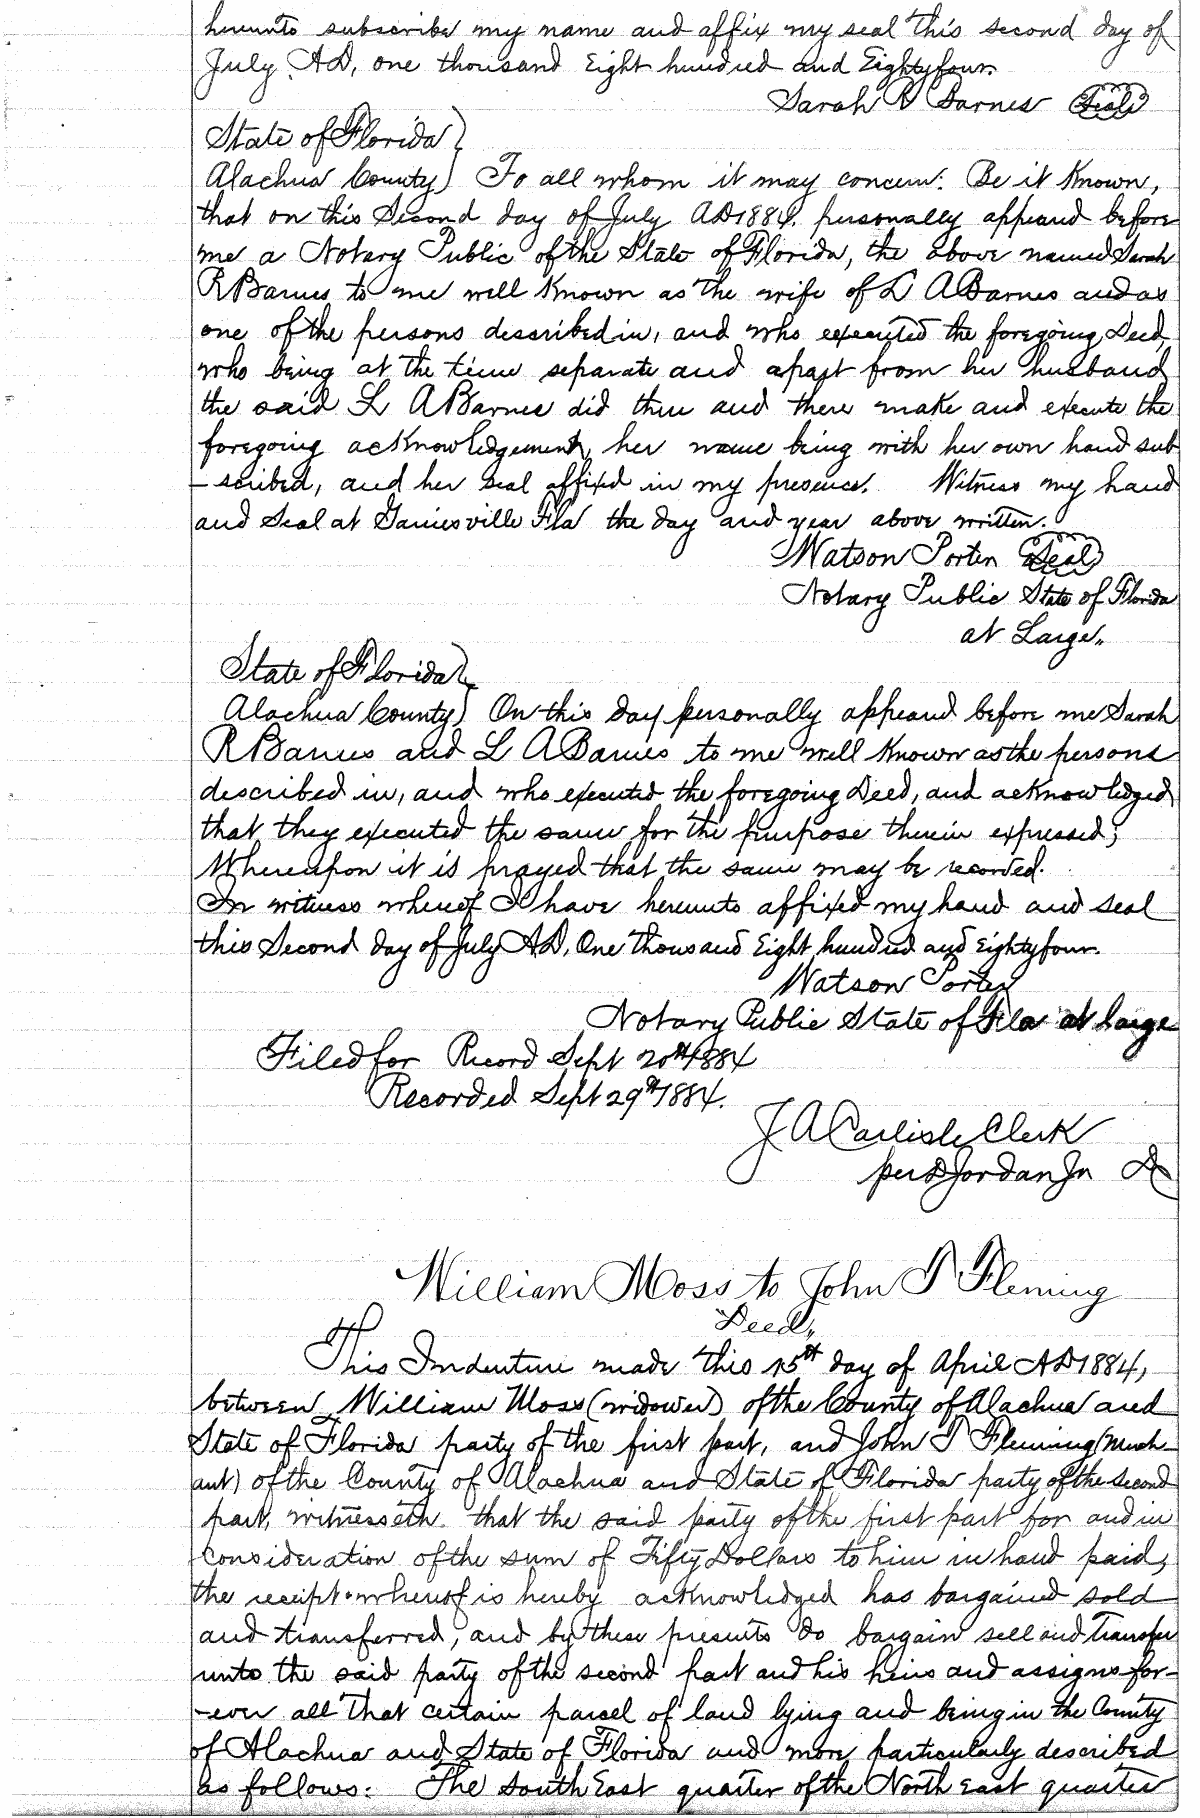 hereunto subscribe my name and affix my seal this second day of
July AD, one thousand Eight hundred and Eightyfour.
Sarah R Barnes Seal
State of Florida
Alachua County) To all whom it may concern: Be it Known,
that on this Second day of July AD1884. personally appeared before
me a Notary Public of the State of Florida, the above named Sarah
R Barnes, to me well Known as the wife of L A Barnes and as
one of the persons described in, and who executed the foregoing Deed,
who being at the time separate and apart from her husband,
the said L A Barnes did then and there make and execute the
foregoing acknowledgement, her name being with her own hand sub
-scribed, and her seal affixed in my presence. Witness my hand
and Seal at Gainesville Fla the day and year above written.
Watson Porter Seal
Notary Public State of Florida
at Large.
State of Florida
Alachua County) On this day personally appeared before me Sarah
R Barnes and L A Barnes to me well Known as the persons
described in, and who executed the foregoing Deed, and acknowledged
that they executed the same for the purpose therein expressed;
Whereupon it is prayed that the same may be recorded.
In witness whereof I have hereunto affixed my hand and seal
this Second day of July AD, One thousand Eight hundred and Eightyfour.
Watson Porter
Notary Public State of Fla at Large
Filed for Record Sept 20th 1884
Recorded Sept 29th 1884.
J A Carlisle Clerk
per D Jordan Jr D C
William Moss to John T Fleming
Deed,
This Indenture made this 15th day of April AD1884,
between William Moss (widower) of the County of Alachua and
State of Florida party of the first part, and John T Fleming (Merch-
ant) of the County of Alachua and State of Florida party of the second
part, witnesseth that the said party of the first part for and in
consideration of the sum of Fifty Dollars to him in hand paid,
the receipt whereof is hereby acknowledged has bargained sold
and transferred, and by these presents do bargain sell and transfer
unto the said party of the second part and his heirs and assigns for-
-ever all that certain parcel of land lying and being in the County
of Alachua and State of Florida and more particularly described
as follows: The South East quarter of the North East quarter